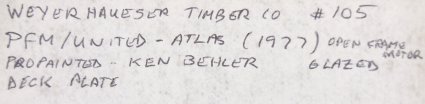 WEYERHAUESER TIMBER CO #105
PFM/UNITED - ATLAS (1977) OPEN FRAME MOTOR
PROPAINTED - KEN BEHLER GLAZED
DECK PLATE